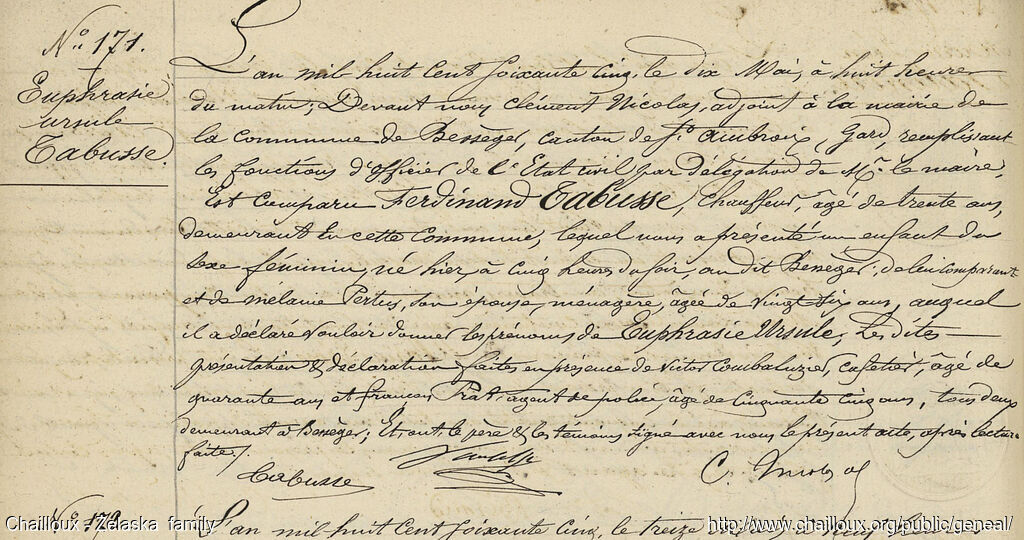 N.º 171.
Euphrasie
ursule
Tabusse.
L'an mil huit cent soixante cinq, le dix Mai, à huit heures
du matin; Devant nous Clément Nicolas, adjoint à la mairie de
la commune de Bessèges, canton de S.t Ambroix, Gard, remplissant
les fonctions d'officier de l'Etat civil par délégation de M.r le maire,
Est Comparu Ferdinand Tabusse, Chauffeur, âgé de trente ans,
demeurant En cette Commune, lequel nous a présenté un enfant du
sexe féminin, né hier, à cinq heures du soir, au dit Bessèges, de lui comparant
et de mélanie Pertus, son épouse, ménagère, âgée de vingt six ans, auquel
il a déclaré vouloir donner les prénoms de Euphrasie Ursule, Les dites
présentation & déclaration faites en présence de Victor Combaluzier, cafetier, âgé de
quarante ans et françois Prat, agent de police, âgé de cinquante cinq ans, tous deux
demeurant à Bessèges; Et, ont, le père & les témoins signé avec nous le présent acte, après lecture
faite/.
Tabusse
C. Nicolas
N.º 172
L'an mil huit cent soixante cinq, le treize
Chailloux - Zelaska family
http://www.chailloux.org/public/geneal/